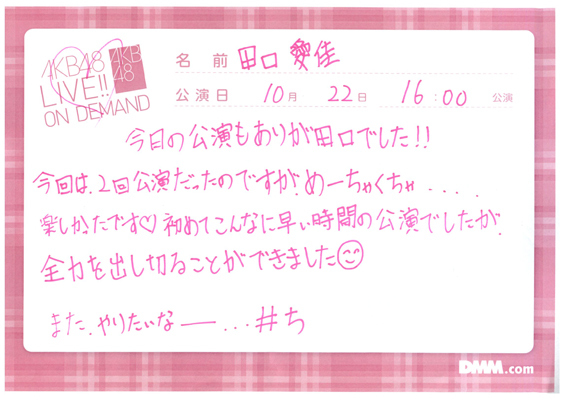 AKB48
LIVE!!
ON DEMAND
AKB
48
名前 田口 愛佳
公演日 10月 22日 16:00 公演
今日の公演もありが田口でした!!
今回は、2回公演だったのですが、めーちゃくちゃ....
楽しかったです♡ 初めてこんなに早い時間の公演でしたが、
全力を出し切ることができました😊
また、やりたいなー...#ち
DMM.com